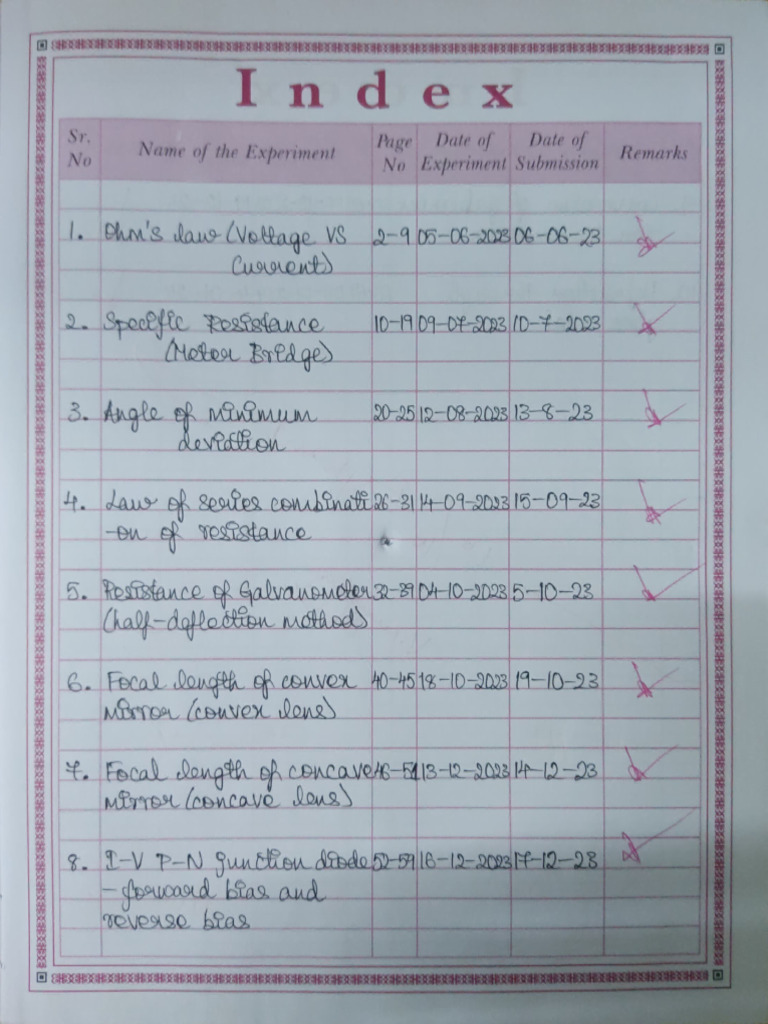 Index
Sr. No Name of the Experiment Page No Date of Experiment Date of Submission Remarks
1. Ohm's law (Voltage VS 2-9 05-06-2023 06-06-23
Current)
2. Specific Resistance 10-19 09-07-2023 10-7-2023
(Meter Bridge)
3. Angle of minimum 20-25 12-08-2023 13-8-23
deviation
4. Law of series combinati 26-31 14-09-2023 15-09-23
-on of resistance
5. Resistance of Galvanometer 32-39 04-10-2023 5-10-23
(half-deflection method)
6. Focal length of convex 40-45 18-10-2023 19-10-23
mirror (convex lens)
7. Focal length of concave 46-51 13-12-2023 14-12-23
mirror (concave lens)
8. I-V P-N junction diode 52-59 16-12-2023 17-12-23
- forward bias and
reverse bias